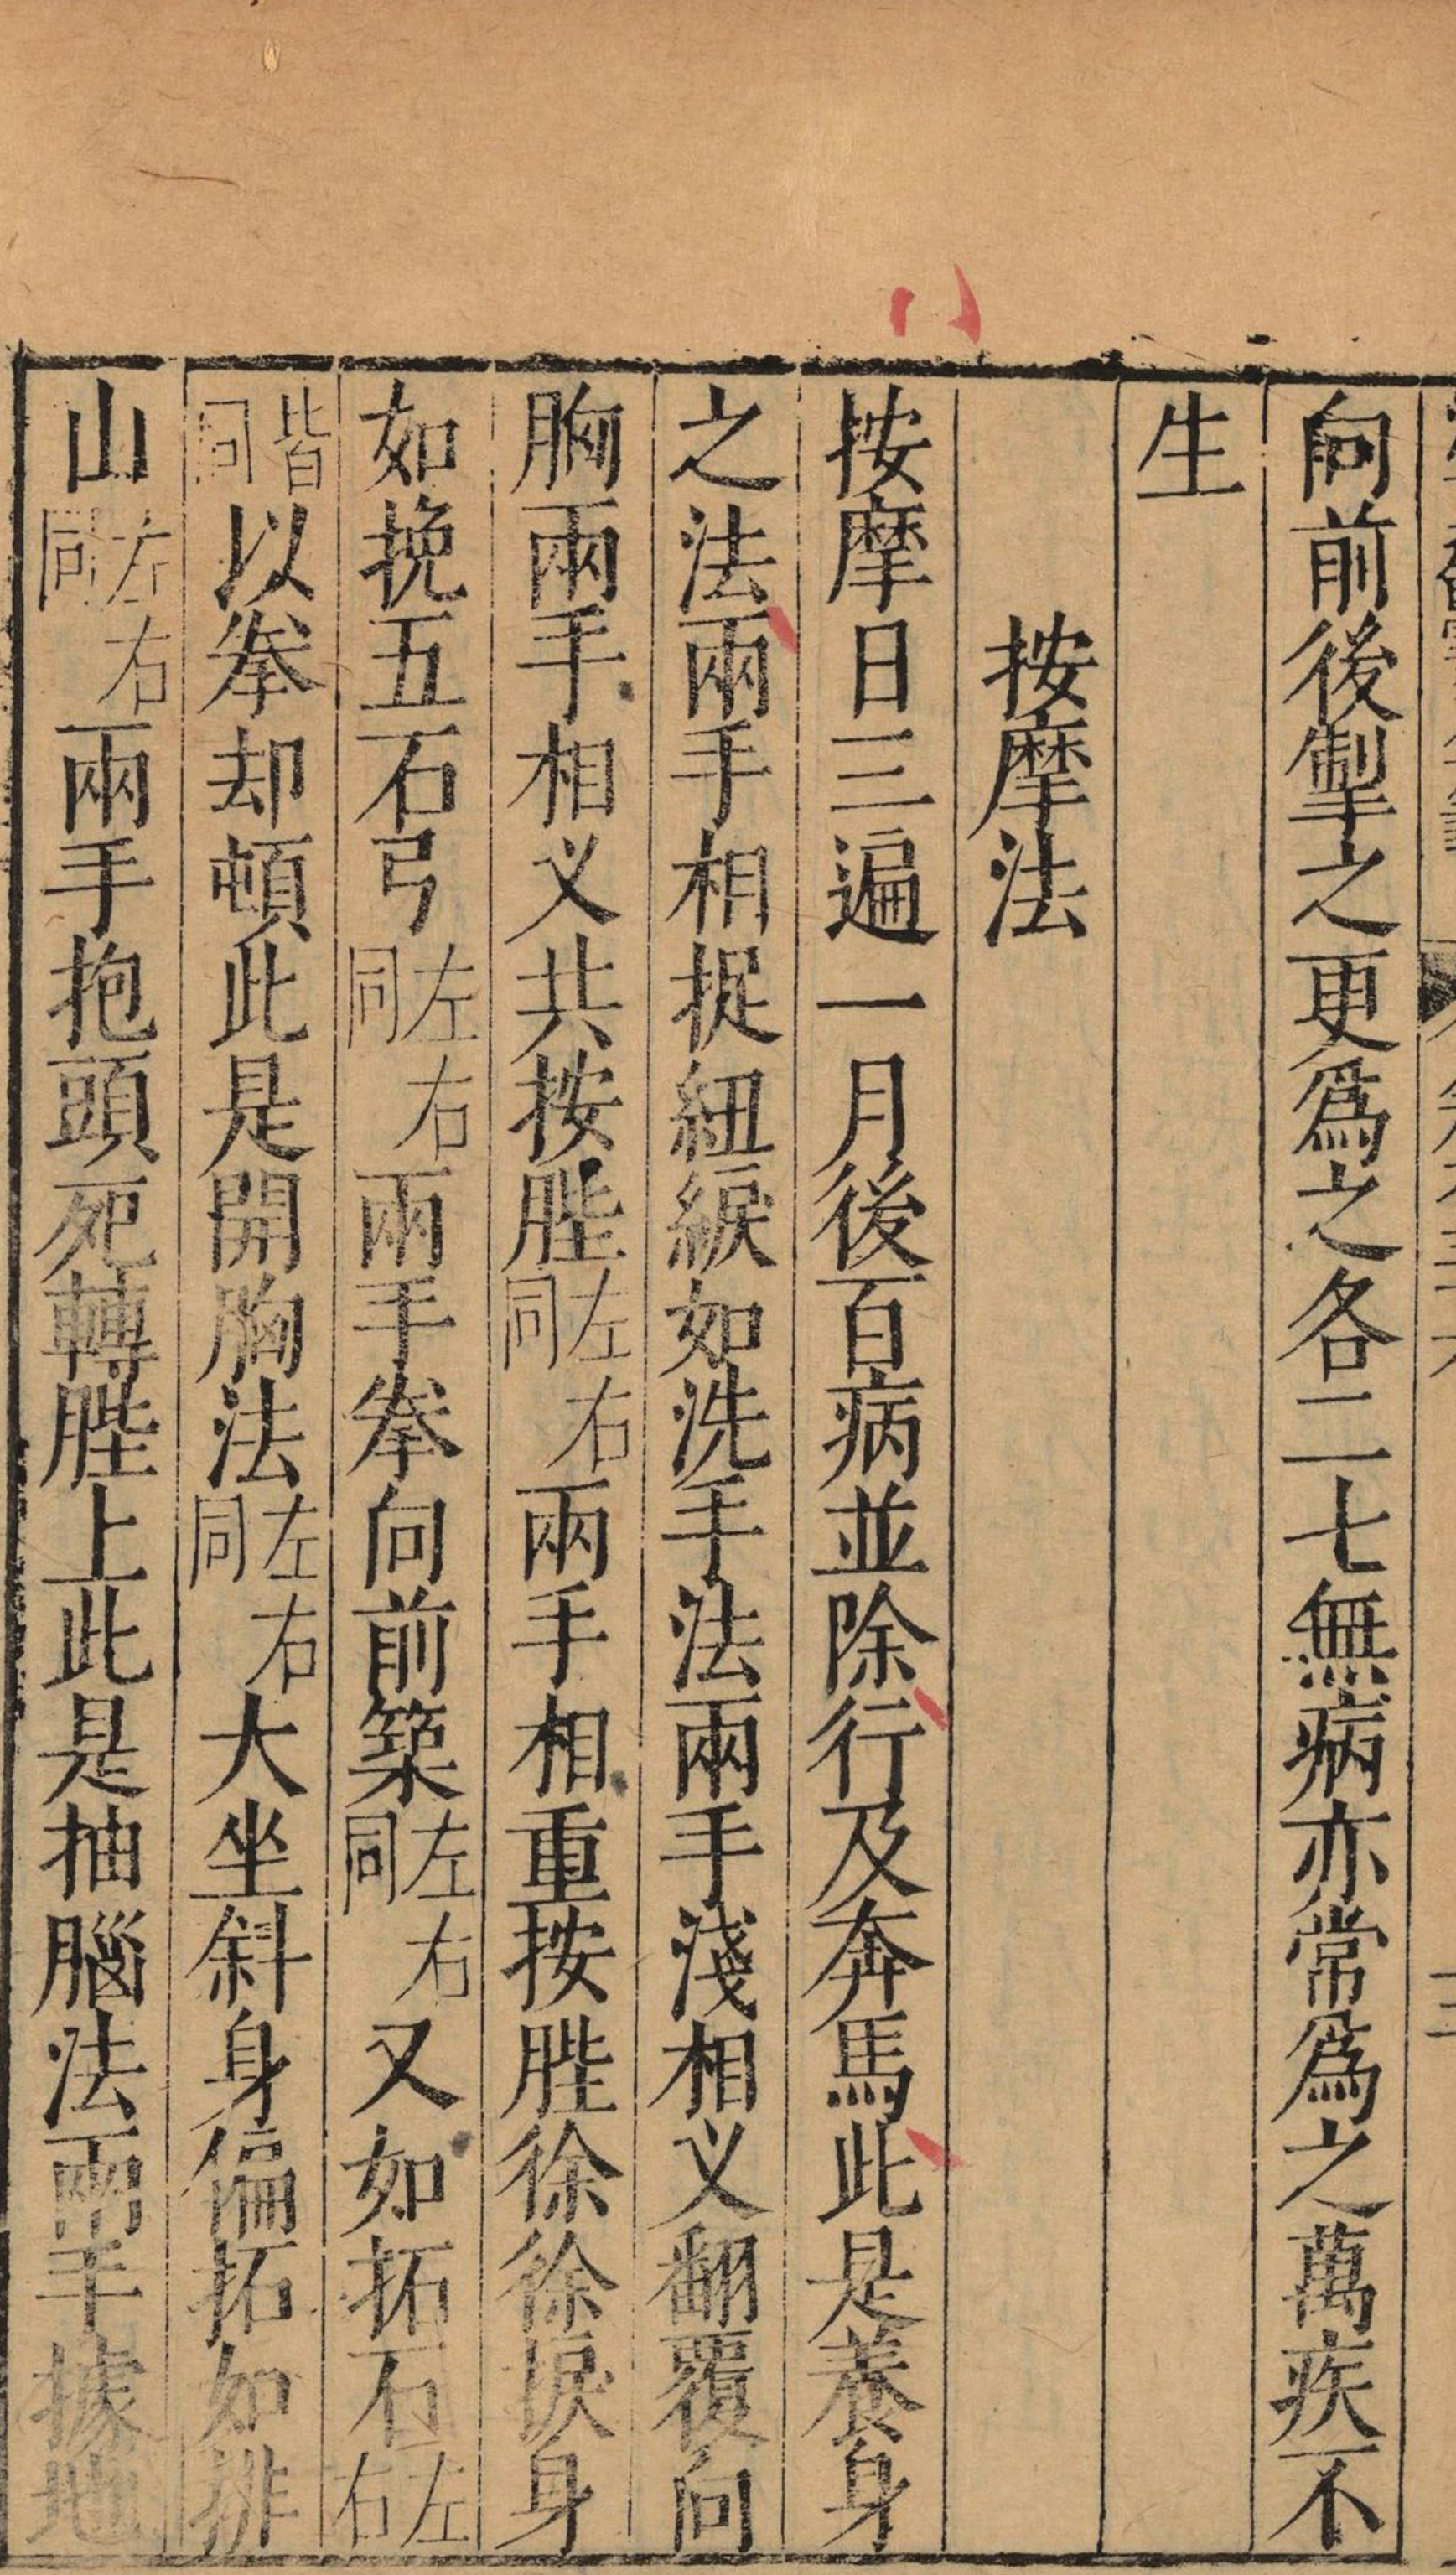 向前後掣之更爲之各二七無病亦常爲之萬疾不
生
按摩法
按摩日三遍一月後百病並除行及奔馬此是養身
之法兩手相捉紐綟如洗手法兩手淺相义翻覆向
胸兩手相义共按䏶左右同兩手相重按䏶徐徐捩身
如挽五石弓左右同兩手拳向前築左右同又如拓石左右
皆同以拳却頓此是開胸法左右同大坐斜身偏拓如排
山左右同兩手抱頭宛轉䏶上此是抽腦法兩手據地